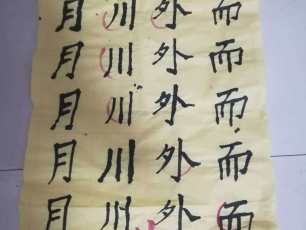 而而而而而
外外外外外
川川川川川
月月月月月